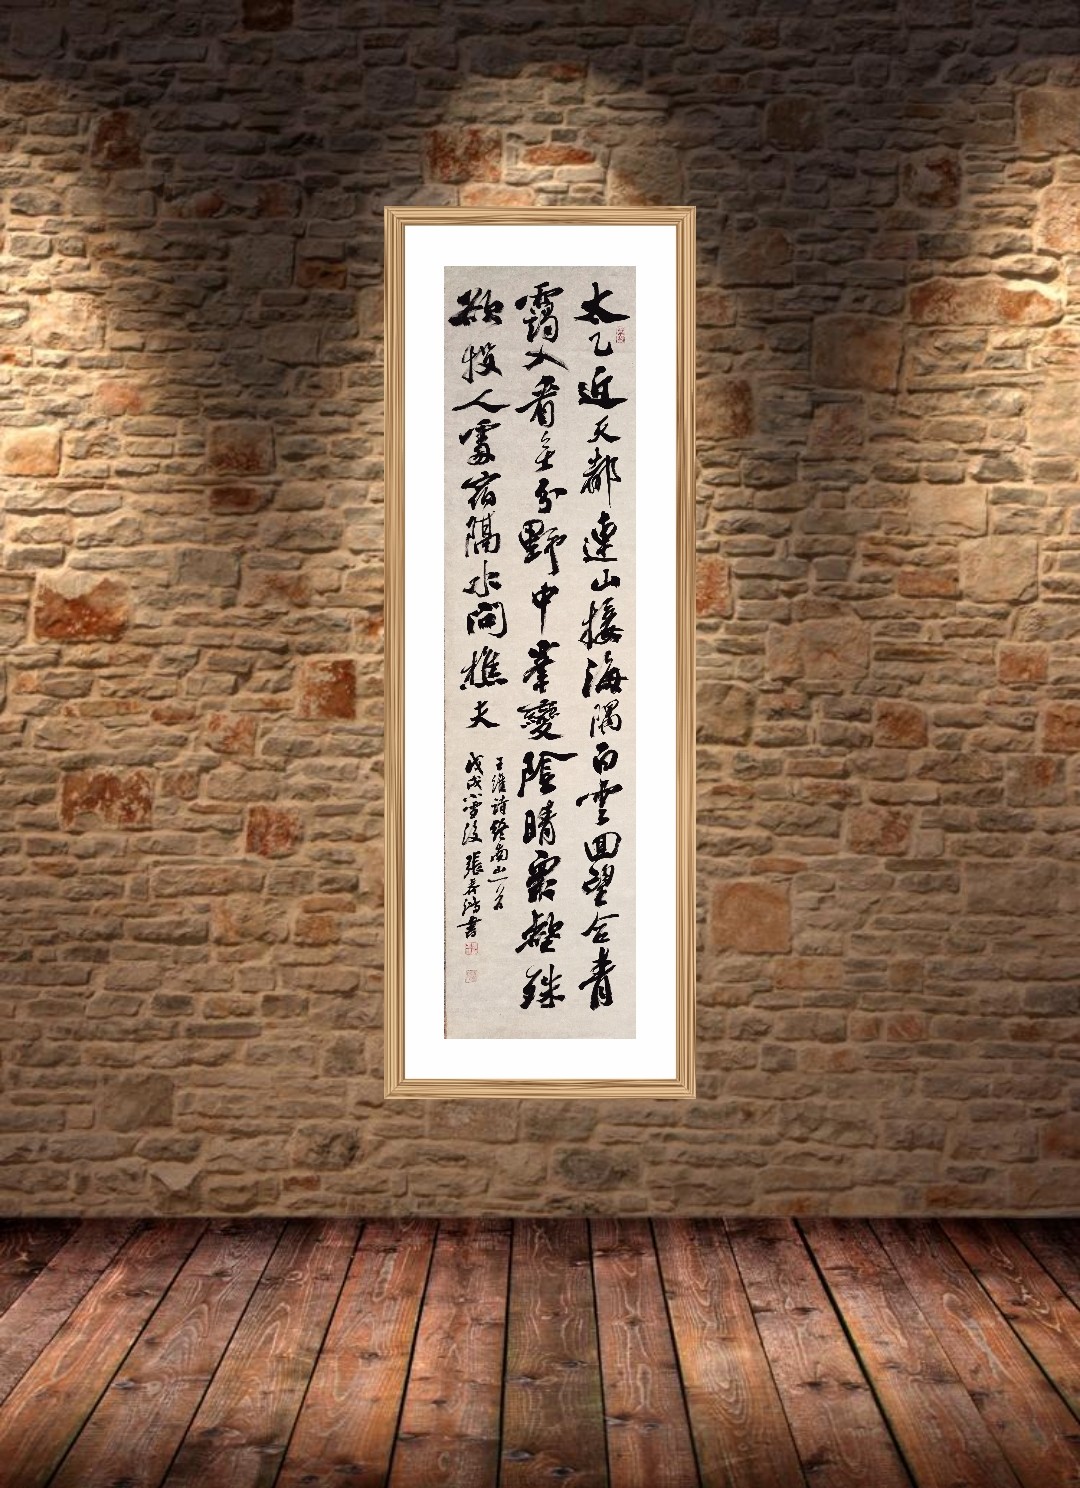 太乙近天都連山接海隅白雲回望合青
靄入看無分野中峯變陰晴衆壑殊
欲投人處宿隔水問樵夫
王維詩終南山一首
戊戌小雪後張書